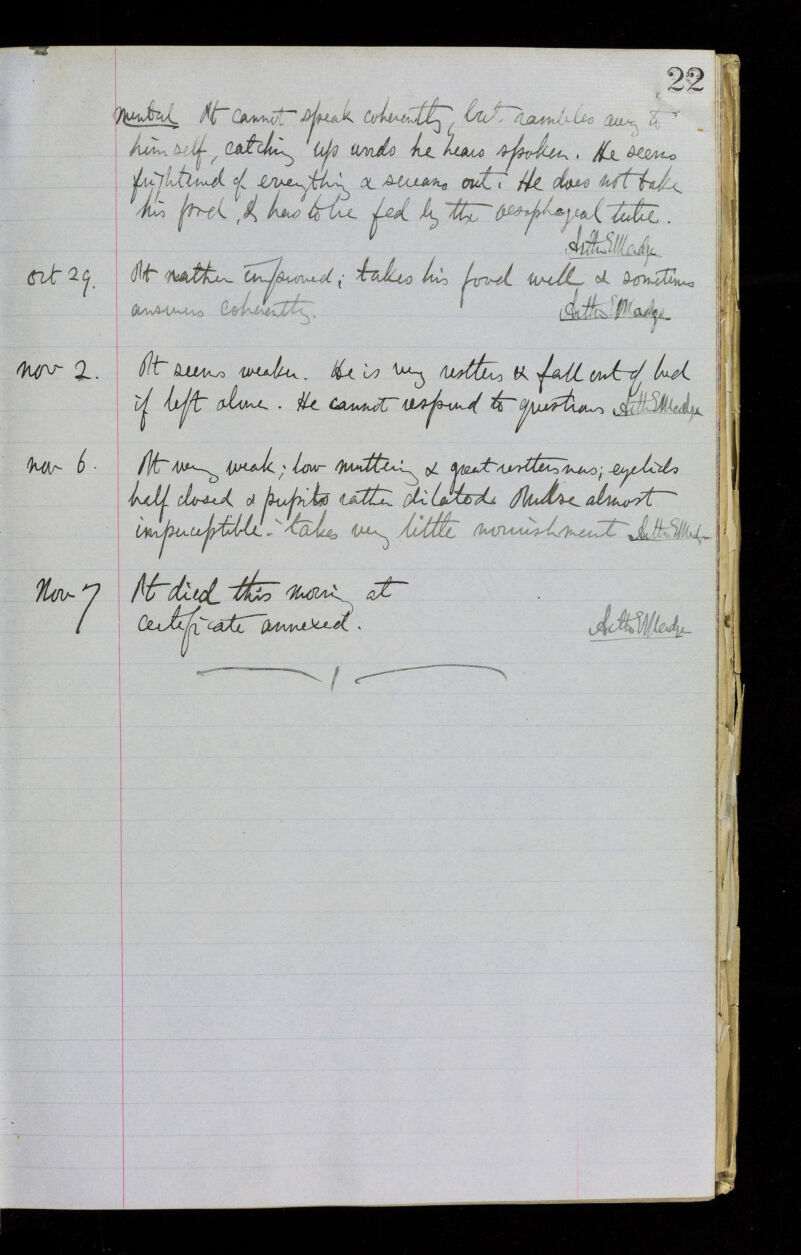 22
Mental Pt cannot speak coherently, but rambles away to
himself, catching up words he hears spoken. He seems
frightened of everything & screams out. He does not take
his food, & has to be fed by the oesophageal tube.
Arth E Madge
Oct 29. Pt rather improved; takes his food well & sometimes
answers coherently. Arth E Madge
Nov 2. Pt seems weaker. He is very restless & fall out of bed
if left alone. He cannot respond to questions Arth E Madge
Nov 6. Pt very weak; low muttering & great restlessness; eyelids
half closed & pupils rather dilated. Pulse almost
imperceptible. takes very little nourishment Arth E Madge
Nov 7 Pt died this morning at
certificate annexed. Arth E Madge